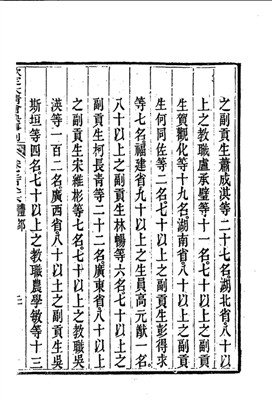 之副貢生蕭成淇等二十七名湖北省八十以
上之教職盧承璧等十一名七十以上之副貢
生賀觀化等十九名湖南省八十以上之副貢
生何同佐等二名七十以上之副貢生彭得求
等七名福建省九十以上之生員高元猷一名
八十以上之副貢生林暢等六名七十以上之
副貢生柯長青等二十二名廣東省八十以上
之副貢生宋維彬等七名七十以上之教職吳
渶等一百二名廣西省八十以上之副貢生吳
斯垣等四名七十以上之教職農學敏等十三